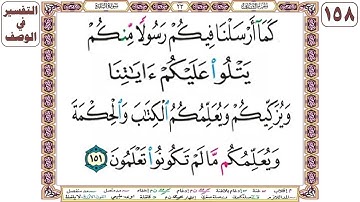 ١٥٨
التفسير
في
الوصف
٢٣
كَمَآ أَرْسَلْنَا فِيكُمْ رَسُولًا مِّنكُمْ
يَتْلُوا۟ عَلَيْكُمْ ءَايَٰتِنَا
وَيُزَكِّيكُمْ وَيُعَلِّمُكُمُ ٱلْكِتَٰبَ وَٱلْحِكْمَةَ
وَيُعَلِّمُكُم مَّا لَمْ تَكُونُوا۟ تَعْلَمُونَ ١٥١